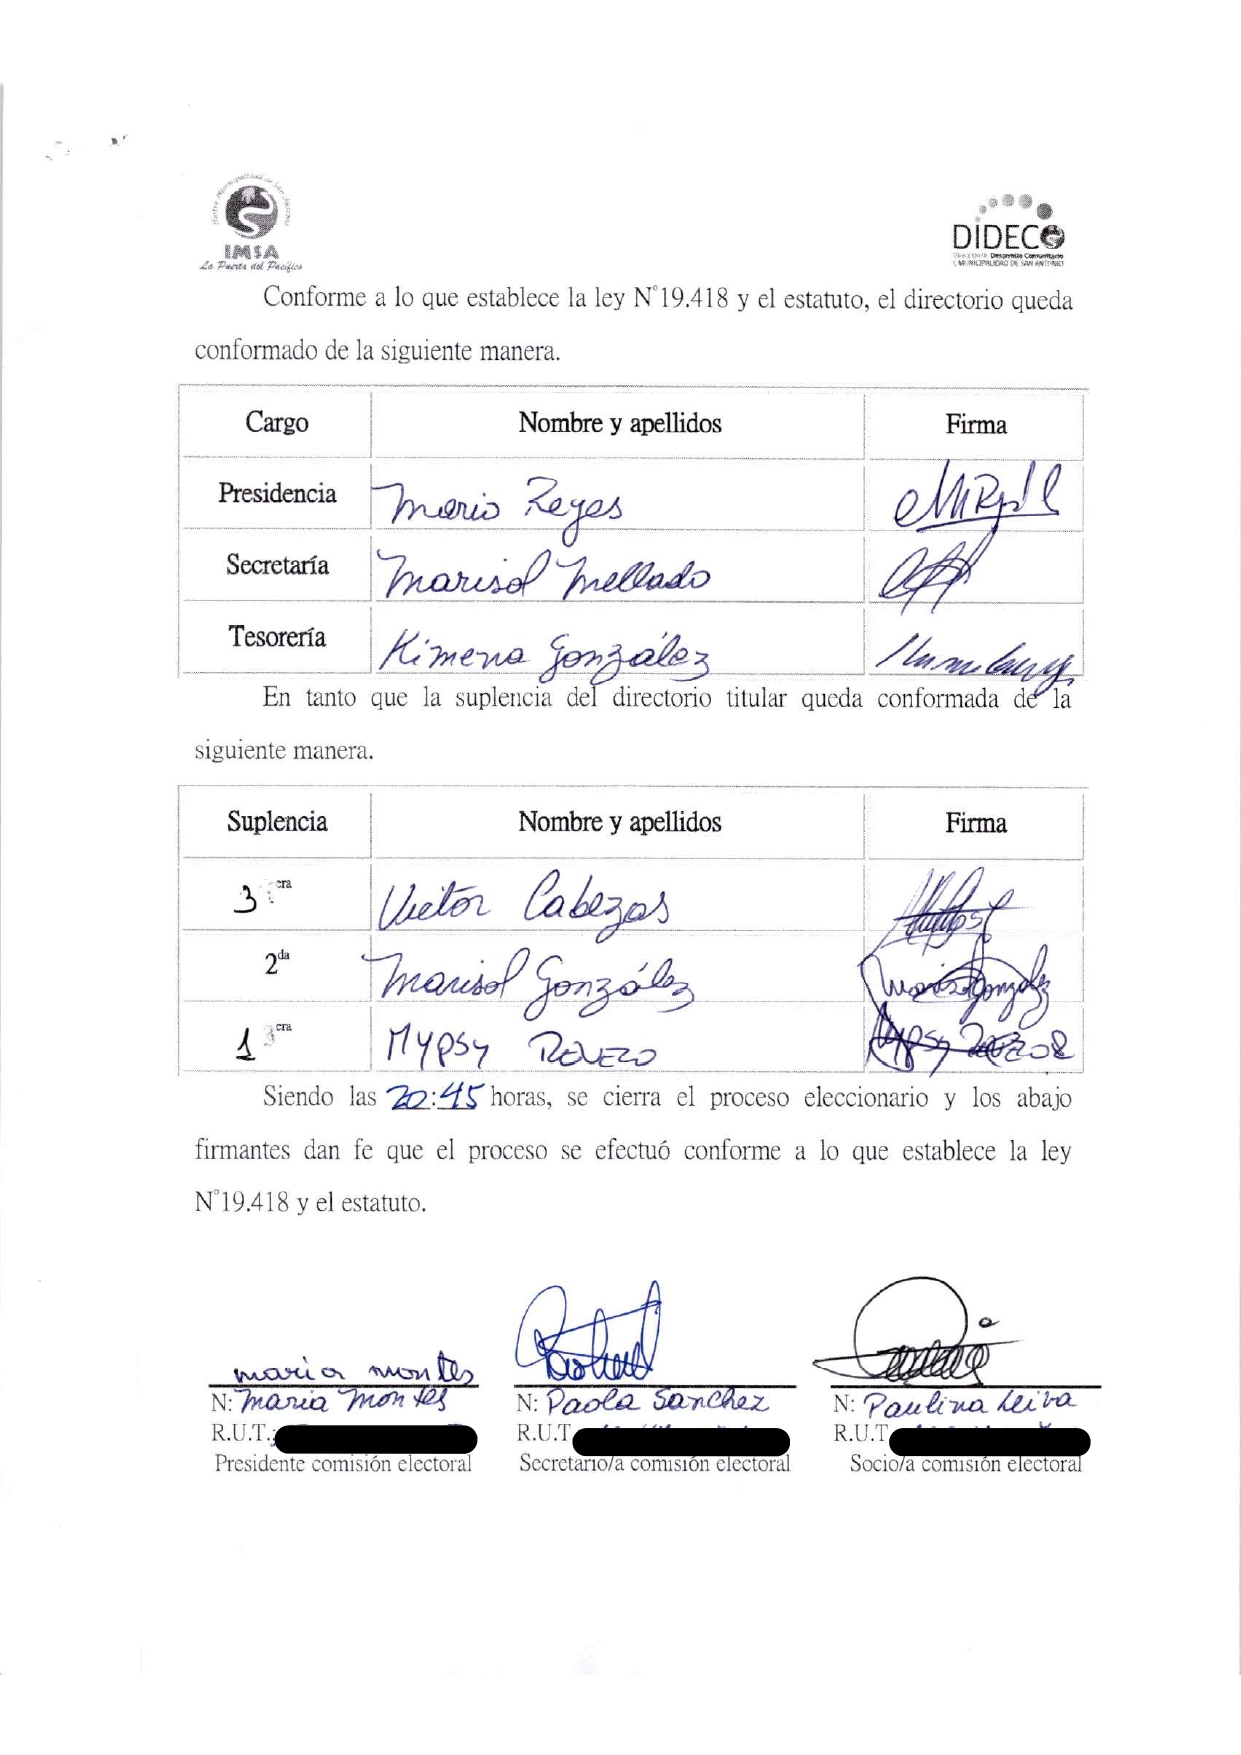 IMSA
La Puerta del Pacífico
DIDECO
Desarrollo Comunitario
MUNICIPALIDAD DE SAN ANTONIO
Conforme a lo que establece la ley N°19.418 y el estatuto, el directorio queda
conformado de la siguiente manera.
Cargo Nombre y apellidos Firma
Presidencia Mario Reyes
Secretaría Marisol Mellado
Tesorería Kimena González
En tanto que la suplencia del directorio titular queda conformada de la
siguiente manera.
Suplencia Nombre y apellidos Firma
3 era Victor Cabezas
2da Marisol González Marisol Gonzalez
1 era Mypsy Rovezo Mypsy
Siendo las 20:45 horas, se cierra el proceso eleccionario y los abajo
firmantes dan fe que el proceso se efectuó conforme a lo que establece la ley
N°19.418 y el estatuto.
maria montes
N: Maria Montes N: Paola Sanchez N: Paulina Leiva
R.U.T.: R.U.T R.U.T
Presidente comisión electoral Secretario/a comisión electoral Socio/a comisión electoral